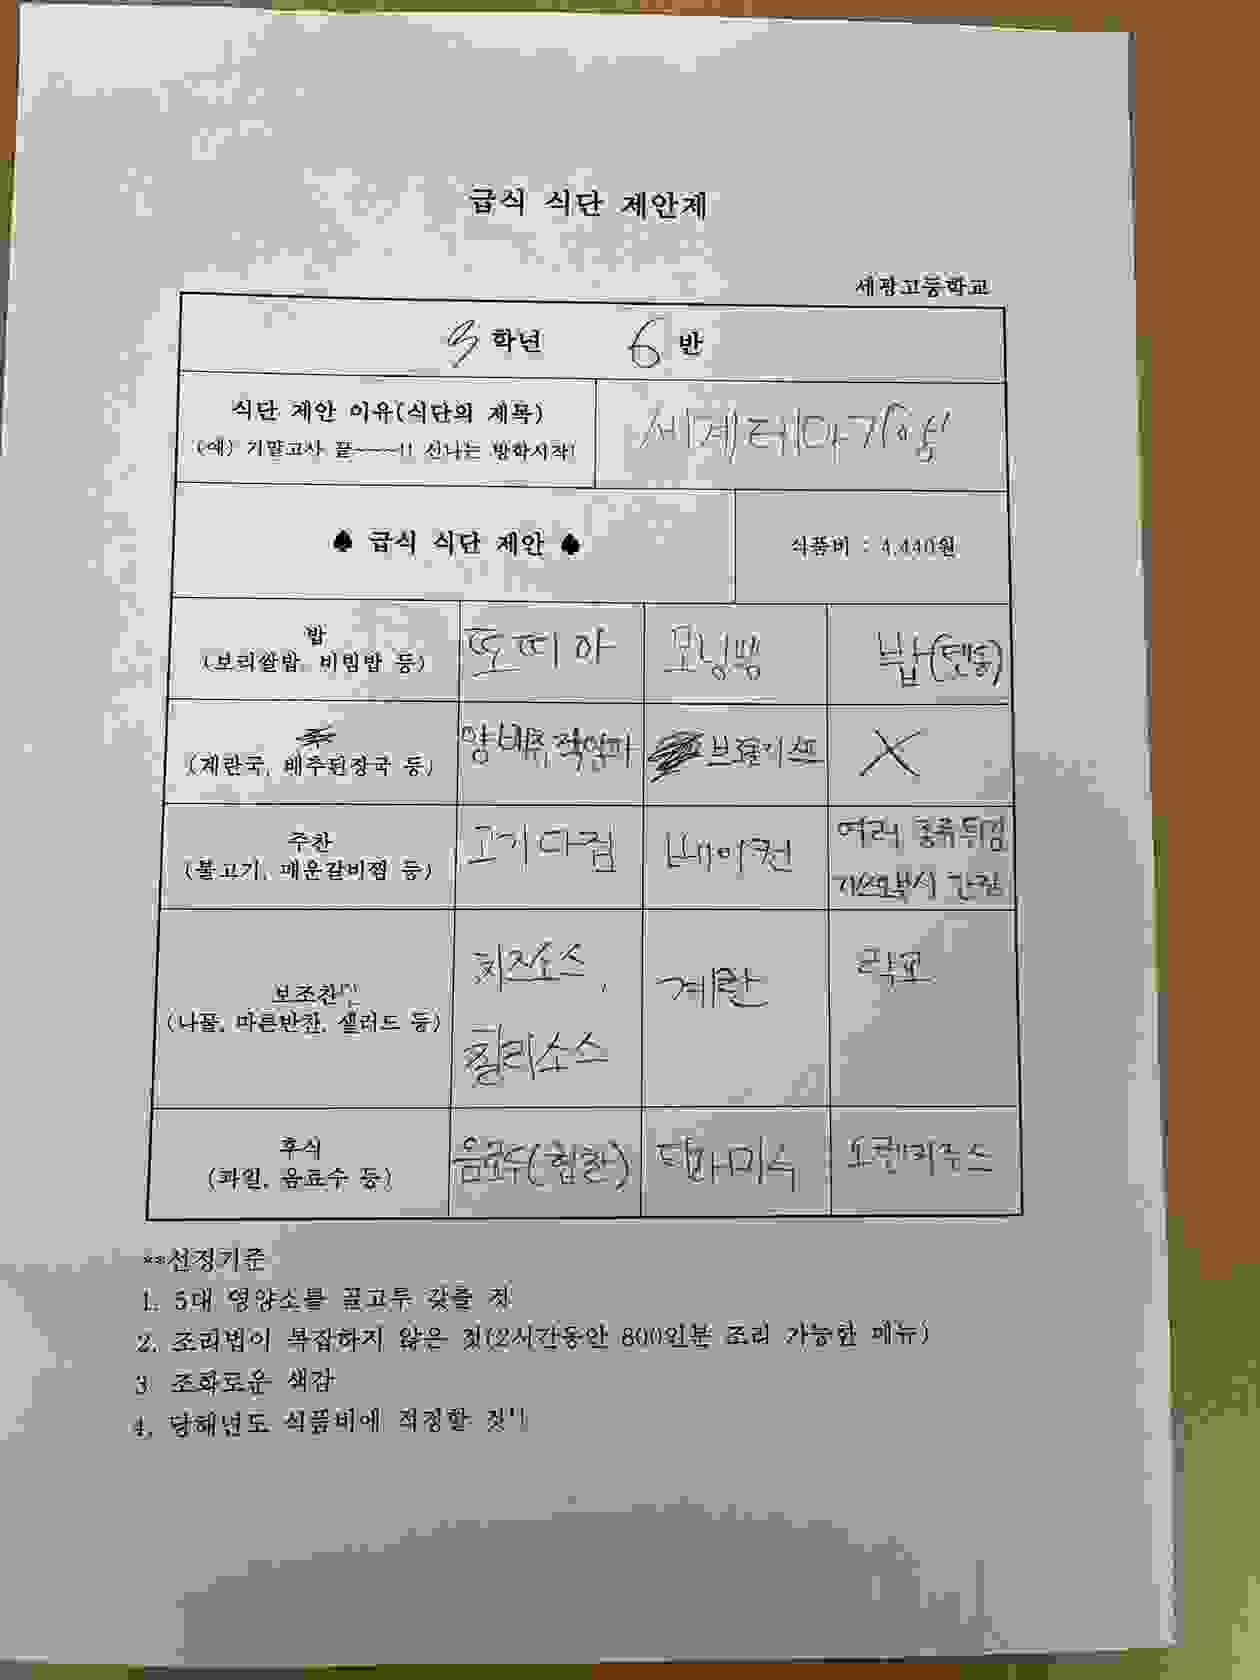 급식 식단 제안제
세광고등학교
3 학년 6 반
식단 제안 이유(식단의 제목)
(예) 기말고사 끝~~~!! 신나는 방학시작!
세계테마기행
♠ 급식 식단 제안 ♠
식품비 : 4,440원
밥
(보리쌀밥, 비빔밥 등)
또띠아
모닝빵
밥(텐동)
(계란국, 배추된장국 등)
양배추, 적양파
X
주찬
(불고기, 매운갈비찜 등)
고기다짐
베이컨
여러 종류튀김
간장
보조찬
(나물, 마른반찬, 샐러드 등)
치즈소스,
칠리소스
계란
락교
후식
(과일, 음료수 등)
음료수(힘찬)
티라미수
오렌지주스
**선정기준
1. 5대 영양소를 골고루 갖출 것
2. 조리법이 복잡하지 않은 것(2시간동안 800인분 조리 가능한 메뉴)
3. 조화로운 색감
4. 당해년도 식품비에 적정할 것!!